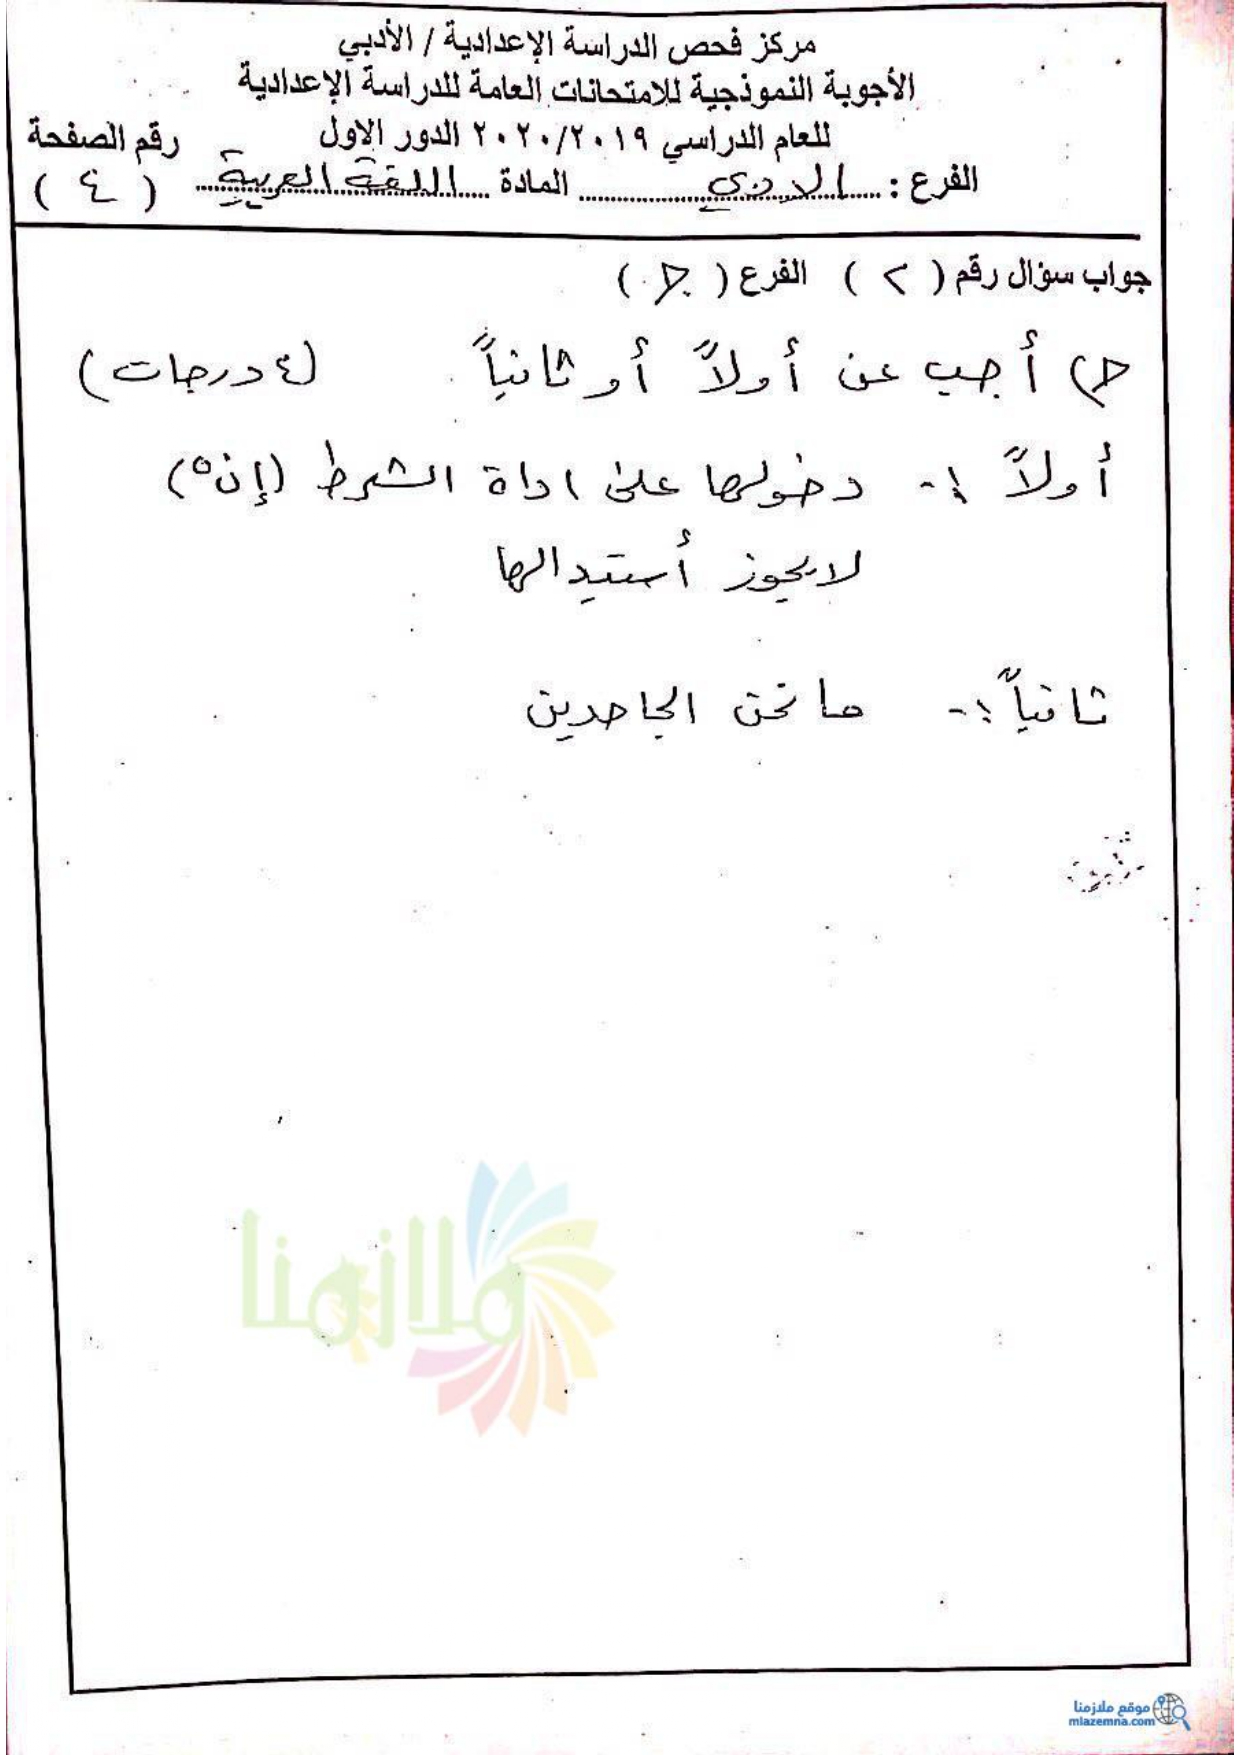 مركز فحص الدراسة الإعدادية / الأدبي
الأجوبة النموذجية للامتحانات العامة للدراسة الإعدادية
للعام الدراسي ٢٠٢٠/٢٠١٩ الدور الاول
رقم الصفحة
الفرع : الادبي المادة اللغة العربية ( ٤ )
جواب سؤال رقم ( ٢ ) الفرع ( ح )
ح) أجب عن أولاً أو ثانياً (٤ درجات)
أولاً :- دخولها على اداة الشرط (إنْ)
لا يجوز أستبدالها
ثانياً :- ما نحن الجاحدين
ملازمنا
موقع ملازمنا
mlazemna.com